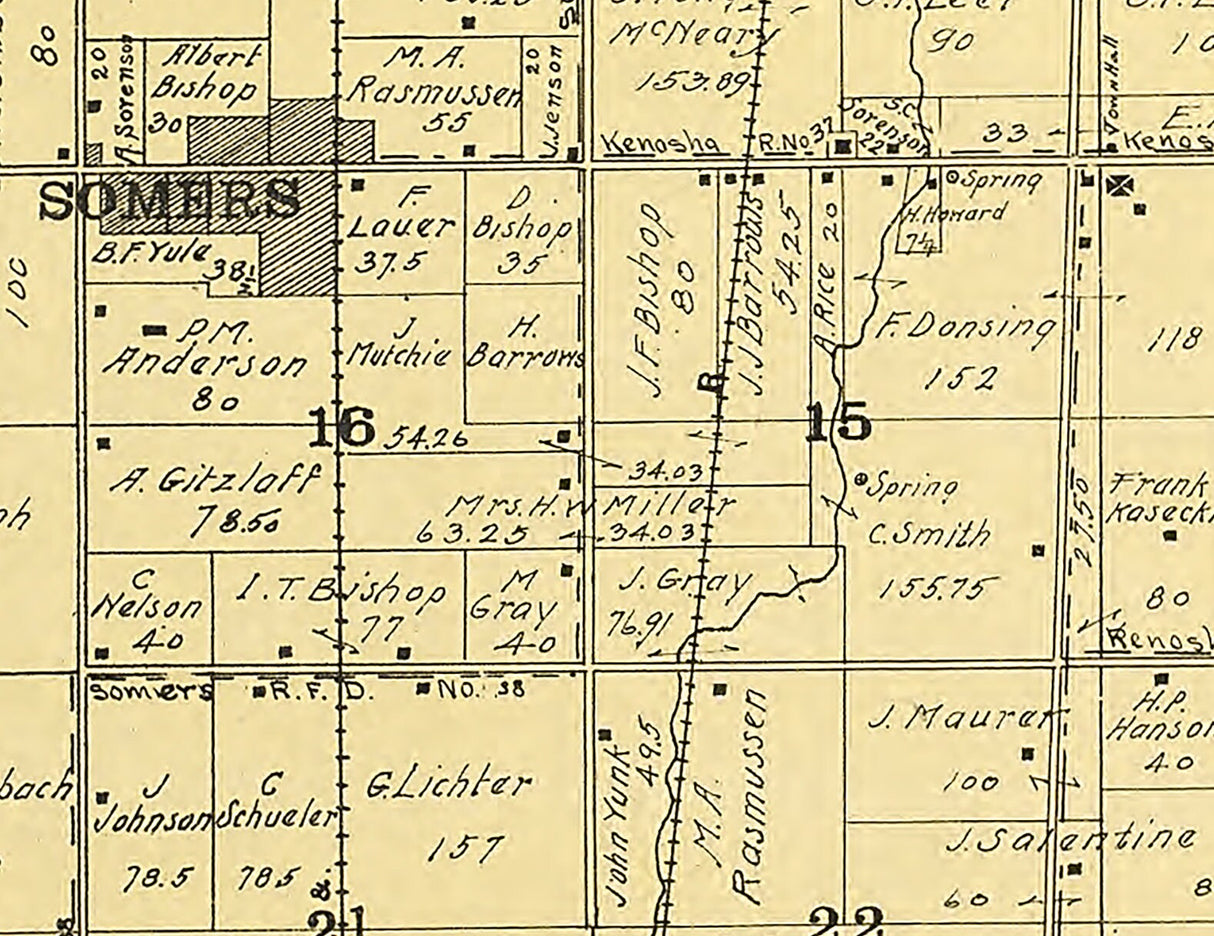 80
20
A. Sorenson
Albert
Bishop
30
M. A.
Rasmussen
55
20
J. Jenson
McNeary
153.89
90
S.C.
Sorenson
22
33
Town Hall
Kenosha R. No 37
Kenos
SOMERS
B.F. Yule
38½
F.
Lauer
37.5
D.
Bishop
35
J.F. Bishop
80
J.J Barrows
54.25
A. RICE 20
Spring
H. Howard
7¼
F. Donsing
152
118
100
P.M.
Anderson
80
J
Mutchie
H.
Barrows
R
16
54.26
15
34.03
A. Gitzlaff
78.50
Mrs. H. W Miller
63.25
34.03
Spring
C. Smith
155.75
27.50
Frank
Kaseck
80
Kenosh
C
Nelson
40
I. T. Bishop
77
M
Gray
40
J. Gray
76.91
Somers R. F. D. No. 38
J
Johnson
78.5
C
Schueler
78.5
R.
G. Lichter
157
John Yunk
49.5
M. A.
Rasmussen
J. Maurer
100
H.P.
Hanson
40
bach
J. Salentine
60
8
21
22